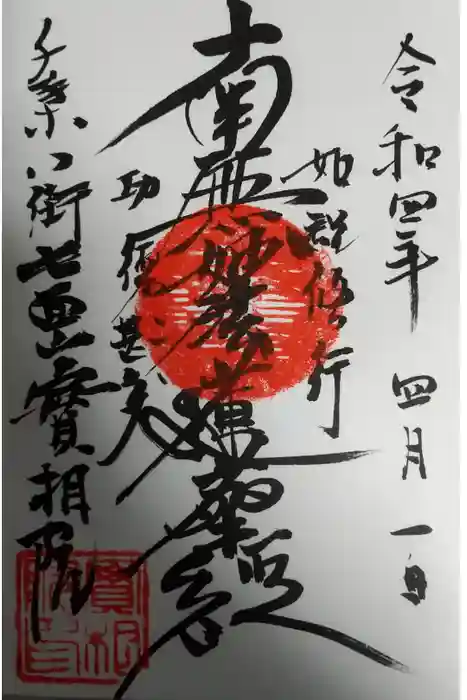 令和四年 四月 一日
如説修行
南無妙法蓮華経
功徳甚多
千葉八街七面山實相院